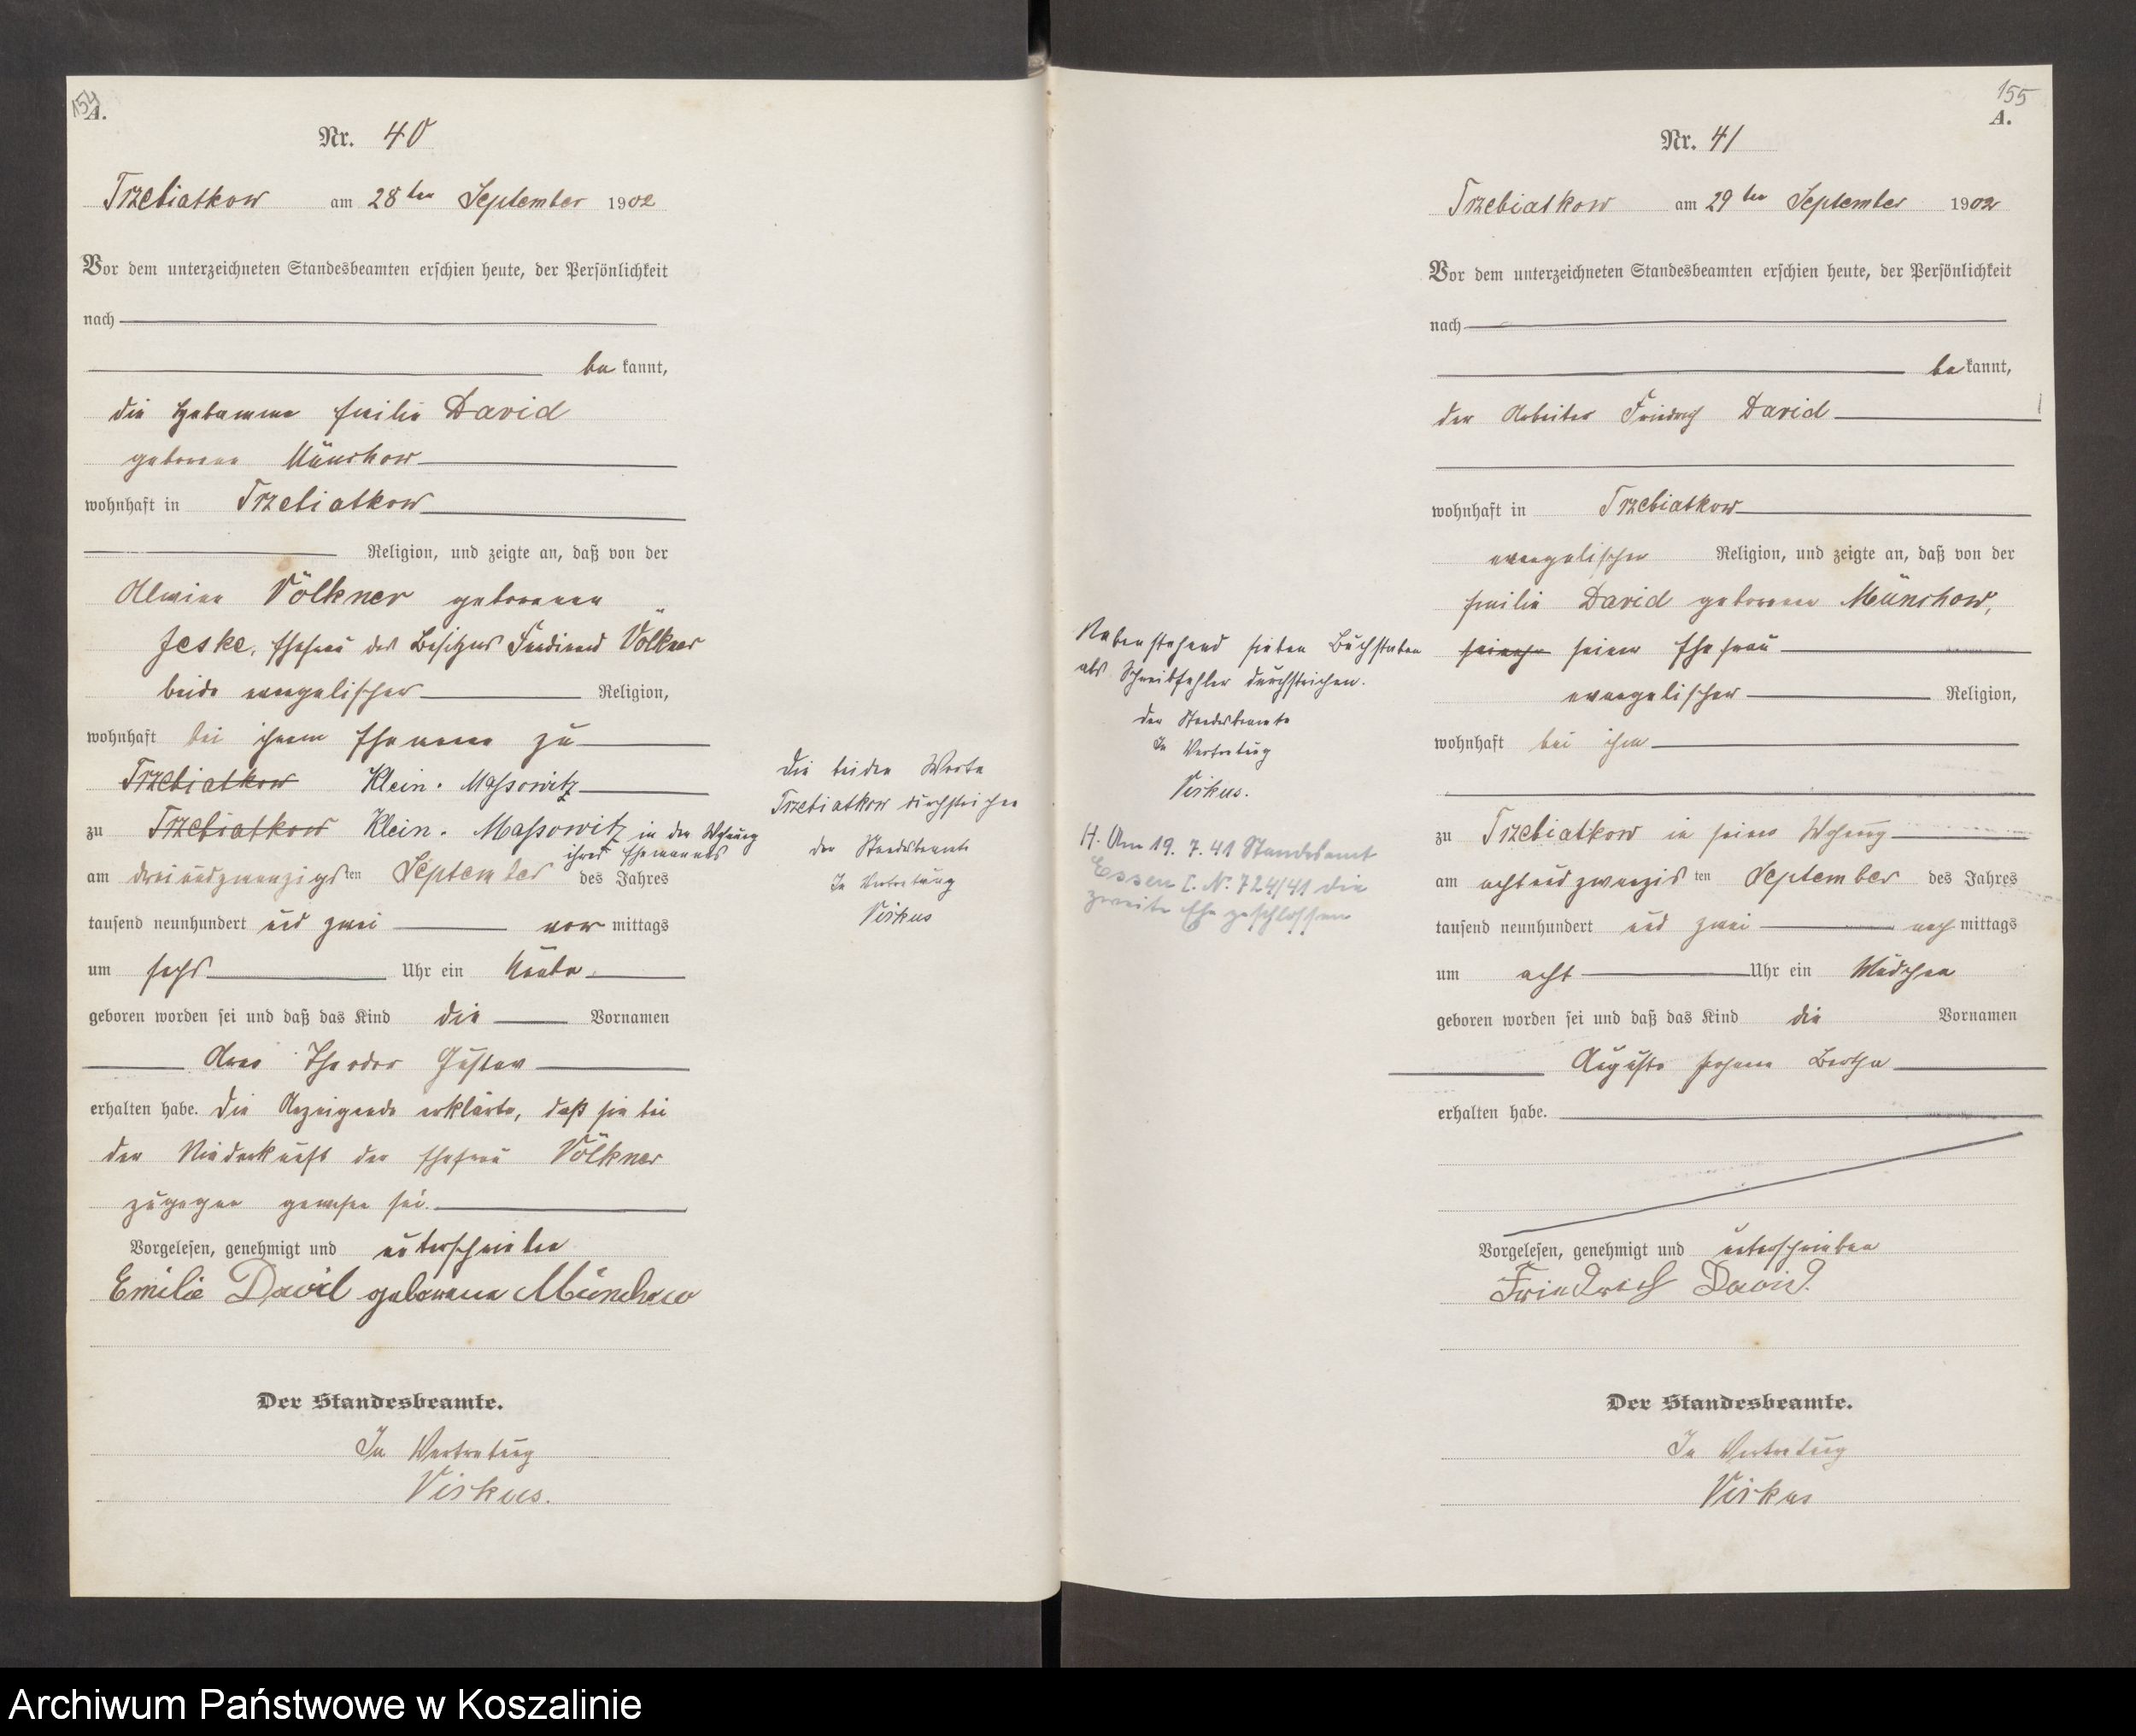 154
A.
Nr. 40
Trzebiatkow am 28ten September 1902
Vor dem unterzeichneten Standesbeamten erschien heute, der Persönlichkeit
nach
be kannt,
die Hebamme Emilie David
geborene Münchow
wohnhaft in Trzebiatkow
Religion, und zeigte an, daß von der
Alwine Völkner geborenen
Jeske, Ehefrau des Besitzers Ferdinand Völkner
beide evangelischer Religion,
wohnhaft bei ihrem Ehemann zu
Trzebiatkow Klein-Massowitz
zu Trzebiatkow Klein-Massowitz in der Wohnung
ihres Ehemannes
am dreiundzwanzigsten September des Jahres
tausend neunhundert und zwei vor mittags
um sechs Uhr ein Knabe
geboren worden sei und daß das Kind die Vornamen
Theodor Gustav
erhalten habe. Die Anzeigende erklärte, daß sie bei
der Niederkunft der Ehefrau Völkner
zugegen gewesen sei.
Vorgelesen, genehmigt und unterschrieben
Emilie David geborene Münchow
Der Standesbeamte.
In Vertretung
Virkus.
Die beiden Worte
Trzebiatkow durchstrichen
der Standesbeamte
In Vertretung
Virkus
155
A.
Nr. 41
Trzebiatkow am 29ten September 1902
Vor dem unterzeichneten Standesbeamten erschien heute, der Persönlichkeit
nach
be kannt,
der Arbeiter Friedrich David
wohnhaft in Trzebiatkow
evangelischer Religion, und zeigte an, daß von der
Emilie David geborene Münchow,
seiner Ehefrau
evangelischer Religion,
wohnhaft bei ihm
zu Trzebiatkow in seiner Wohnung
am achtundzwanzigsten September des Jahres
tausend neunhundert und zwei nach mittags
um acht Uhr ein Mädchen
geboren worden sei und daß das Kind die Vornamen
Auguste Johanne Bertha
erhalten habe.
Vorgelesen, genehmigt und unterschrieben
Friedrich David.
Der Standesbeamte.
In Vertretung
Virkus
Nebenstehend sieben Buchstaben
als Schreibfehler durchstrichen.
Der Standesbeamte
In Vertretung
Virkus.
H. Am 19. 7. 41 Standesamt
Essen I. Nr. 724/41 die
zweite Ehe geschlossen
Archiwum Państwowe w Koszalinie